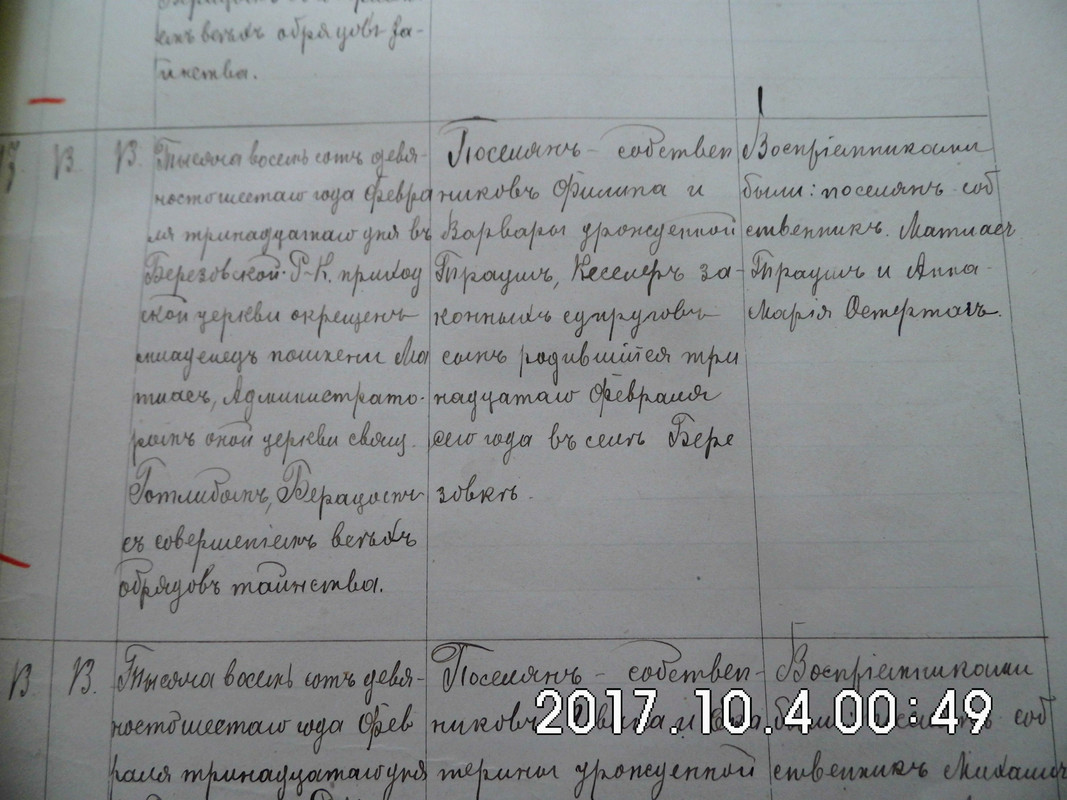 емъ всѣхъ обрядовъ та-
инства.
В. В. Тысяча восемь сотъ девя-
ностошестаго года Февра
ля тринадцатаго дня въ
Березовской Р-К. приход
ской церкви окрещенъ
младенецъ помѣни Ма
тиасъ, Администрато-
ромъ оной церкви свящ.
Готлибомъ, Берацомъ
съ совершеніемъ всѣхъ
обрядовъ таинства.
Поселянъ - собствен
никовъ Филипа и
Варвары урожденной
Траушъ, Кеслеръ за-
конныхъ супруговъ
сынъ родившійся три
надцатаго Февраля
сего года въ селѣ Бере
зовкѣ.
Воспріемниками
были: поселянъ соб
ственникъ. Матиасъ
Траушъ и Анна-
Марія Остертагъ.
В. В. Тысяча восемь сотъ девя-
ностошестаго года Фев
раля тринадцатаго дня
Поселянъ - собствен-
никовъ
терины урожденной
Воспріемниками
соб
ственникъ Михаилъ
2017.10.4 00:49